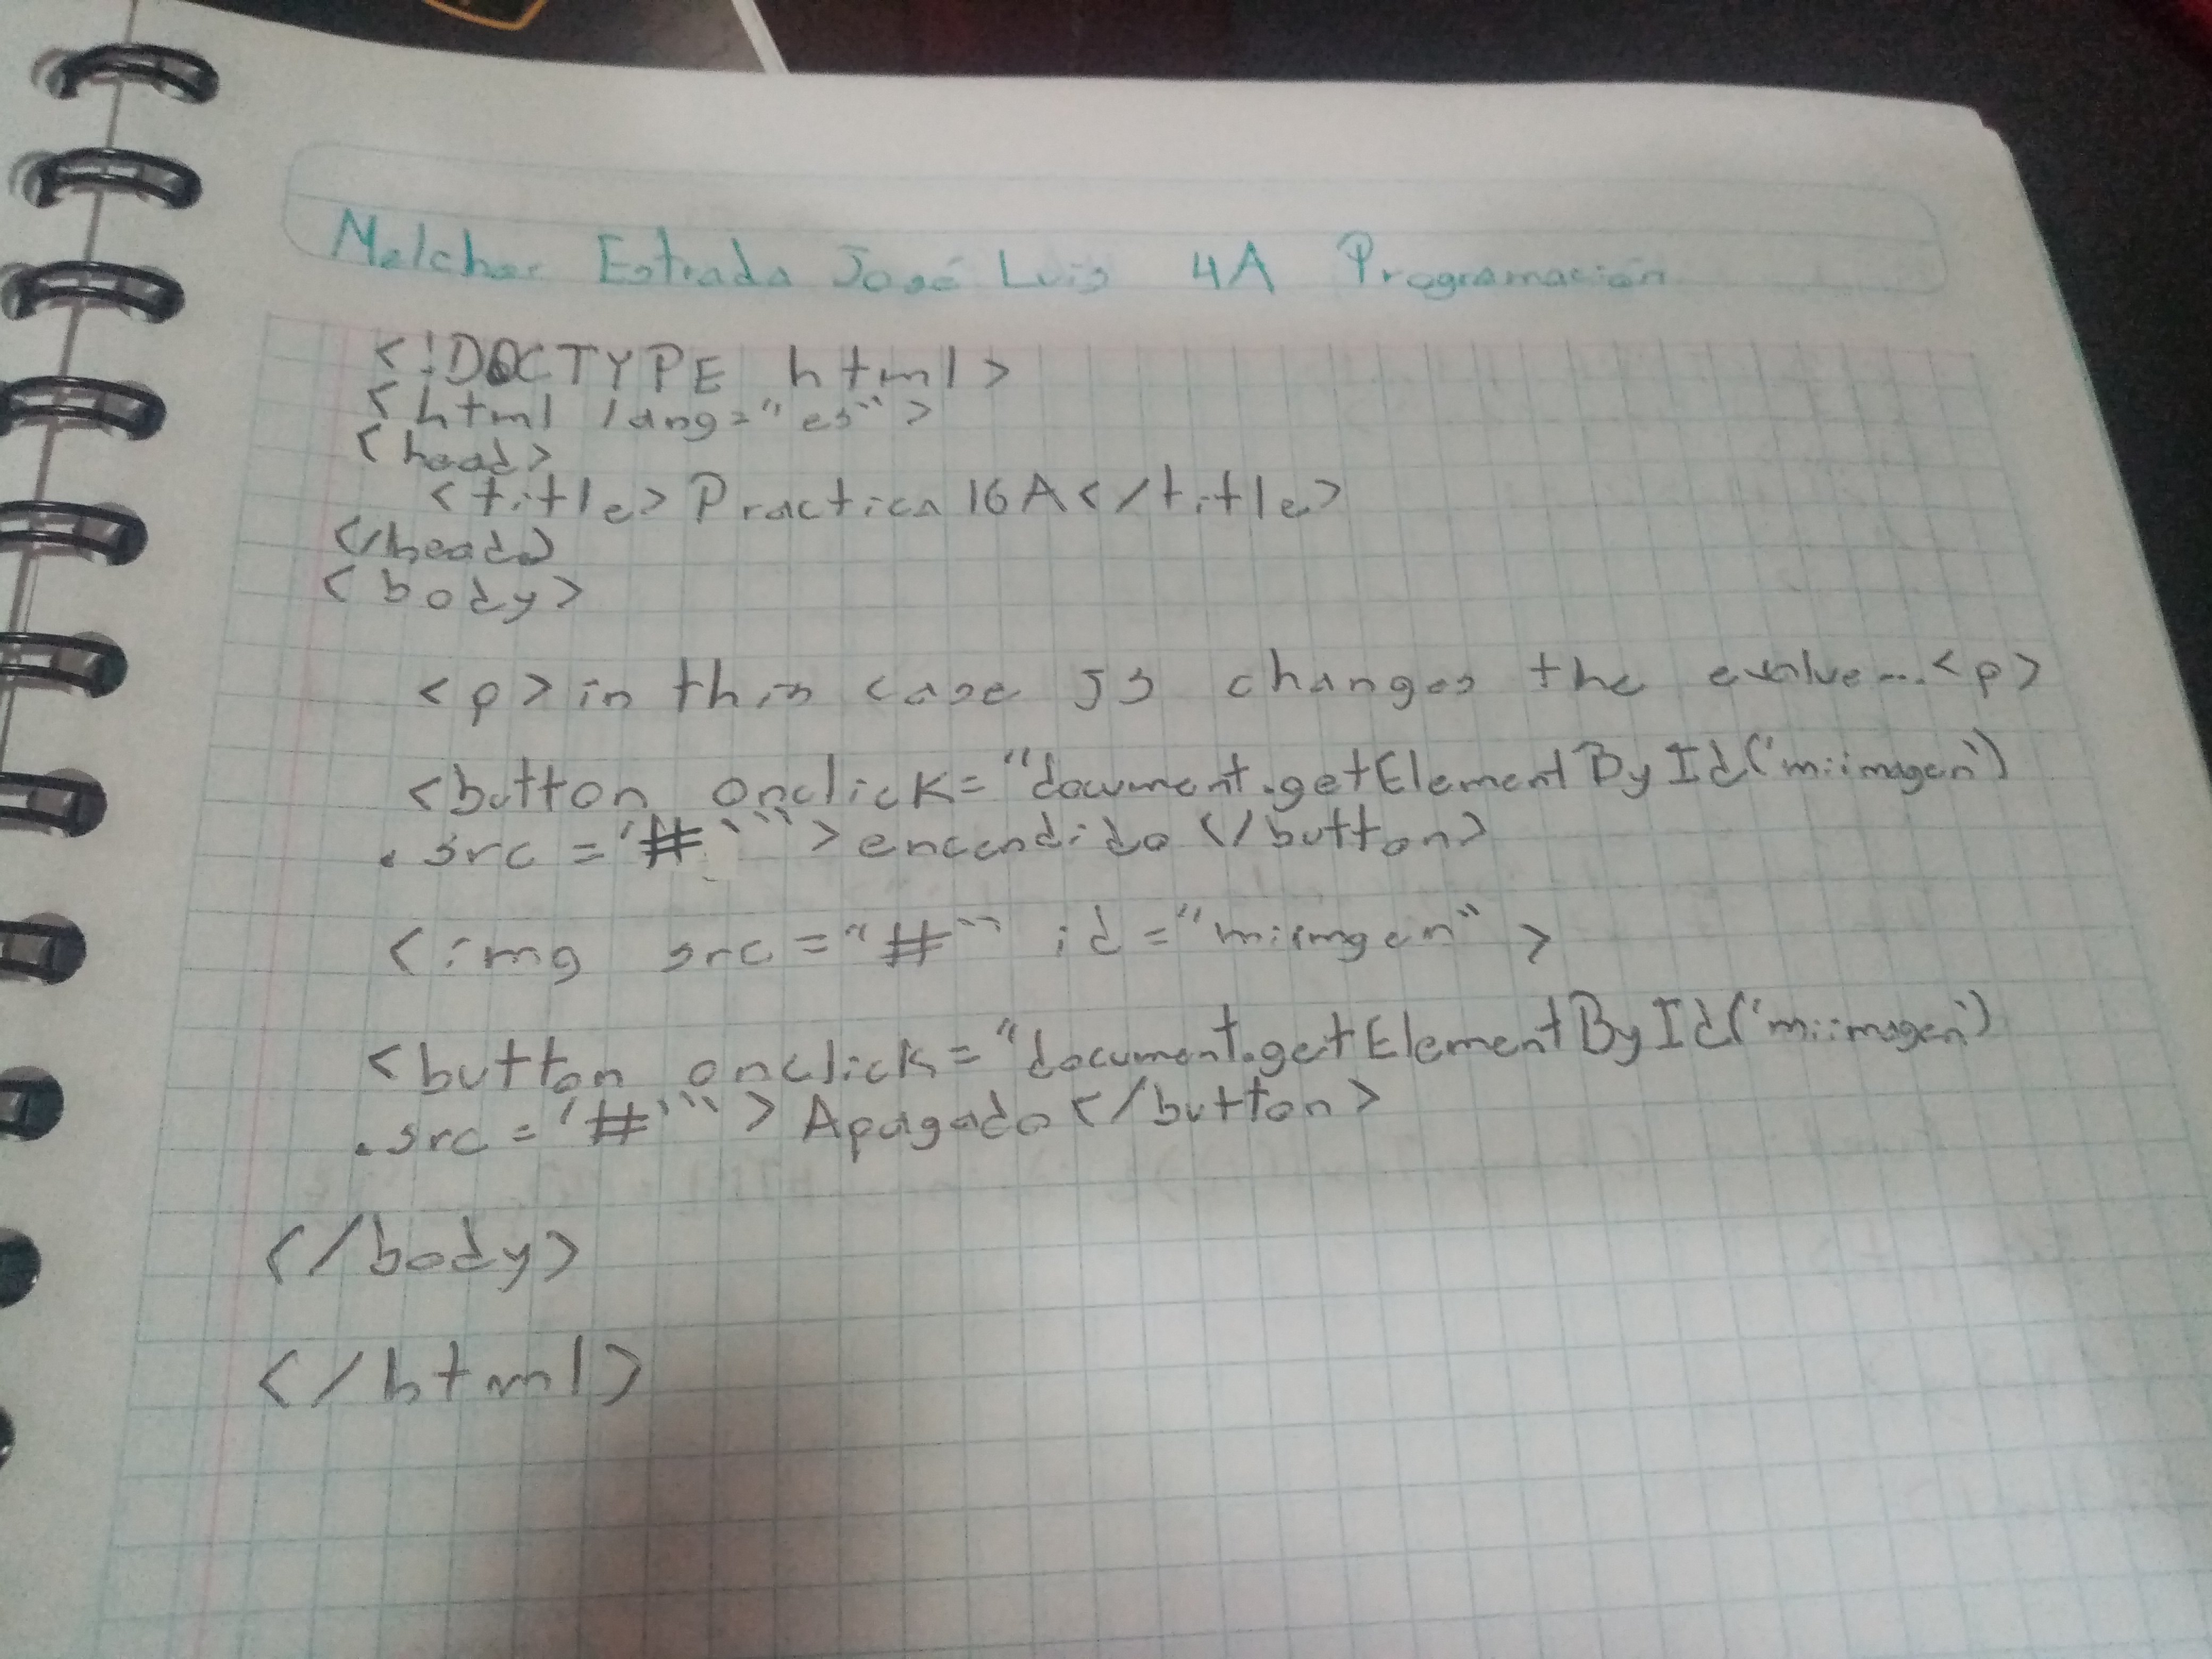 Melchor Estrada José Luis 4A Programación
<!DOCTYPE html>
<html lang="es">
<head>
<title>Practica 16A</title>
</head>
<body>
<p>in this case JS changes the <p>
<button onclick="document.getElementById('miimagen')
.src='#'">encendido</button>
<img src="#" id="miimgen">
<button onclick="document.getElementById('miimagen')
.src='#'">Apagado</button>
</body>
</html>